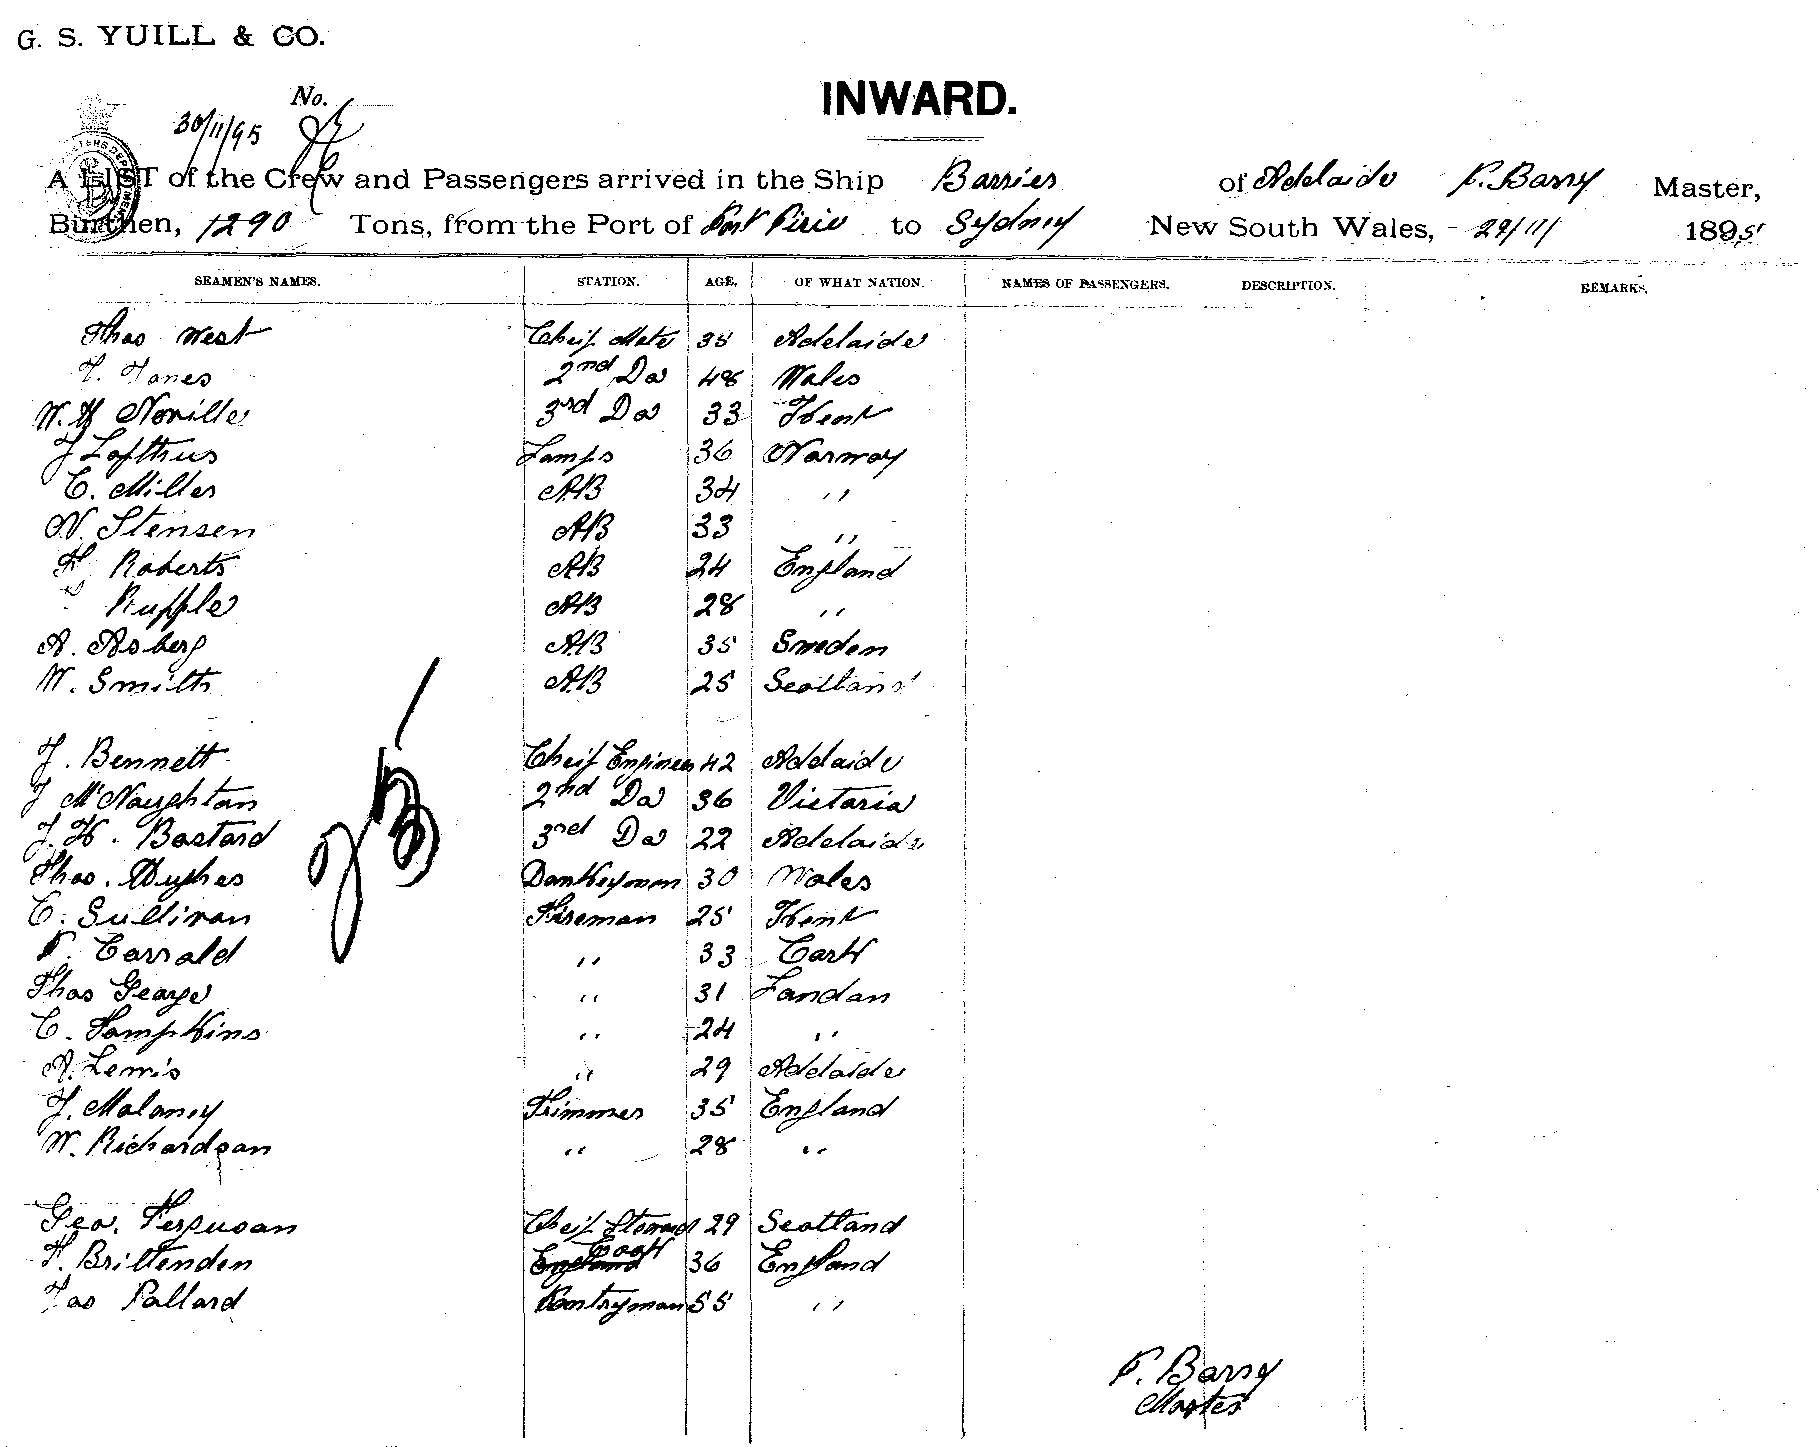 G. S. YUILL & CO.
No.
30/11/95
INWARD.
A LIST of the Crew and Passengers arrived in the Ship Barrier of Adelaide F. Barry Master,
Burthen, 1290 Tons, from the Port of Port Pirie to Sydney New South Wales, - 29/11/ 1895
SEAMEN'S NAMES. STATION. AGE. OF WHAT NATION. NAMES OF PASSENGERS. DESCRIPTION. REMARKS.
Thos West Cheif Mate 35 Adelaide
Jones 2nd Do 48 Wales
W. H Noville 3rd Do 33 Kent
J Lofthus Lamps 36 Norway
C. Miller AB 34 "
N. Stensen AB 33 "
Roberts AB 24 England
Rupple AB 28 "
A. Asberg AB 35 Sweden
W. Smith AB 25 Scotland
J. Bennett Cheif Engineer 42 Adelaide
J McNaughton 2nd Do 36 Victoria
J. H. Bastard 3rd Do 22 Adelaide
Thos. Hughes Donkeyman 30 Wales
C. Sullivan Fireman 25 Kent
Carrald " 33 Cork
Thos George " 31 London
C. Tompkins " 24 "
A. Lewis " 29 Adelaide
J. Maloney Trimmer 35 England
W. Richardson " 28 "
Geo. Ferguson Cheif Steward 29 Scotland
F. Brittenden England Cook 36 England
Jas Pollard Pantryman 55 "
F. Barry
Master